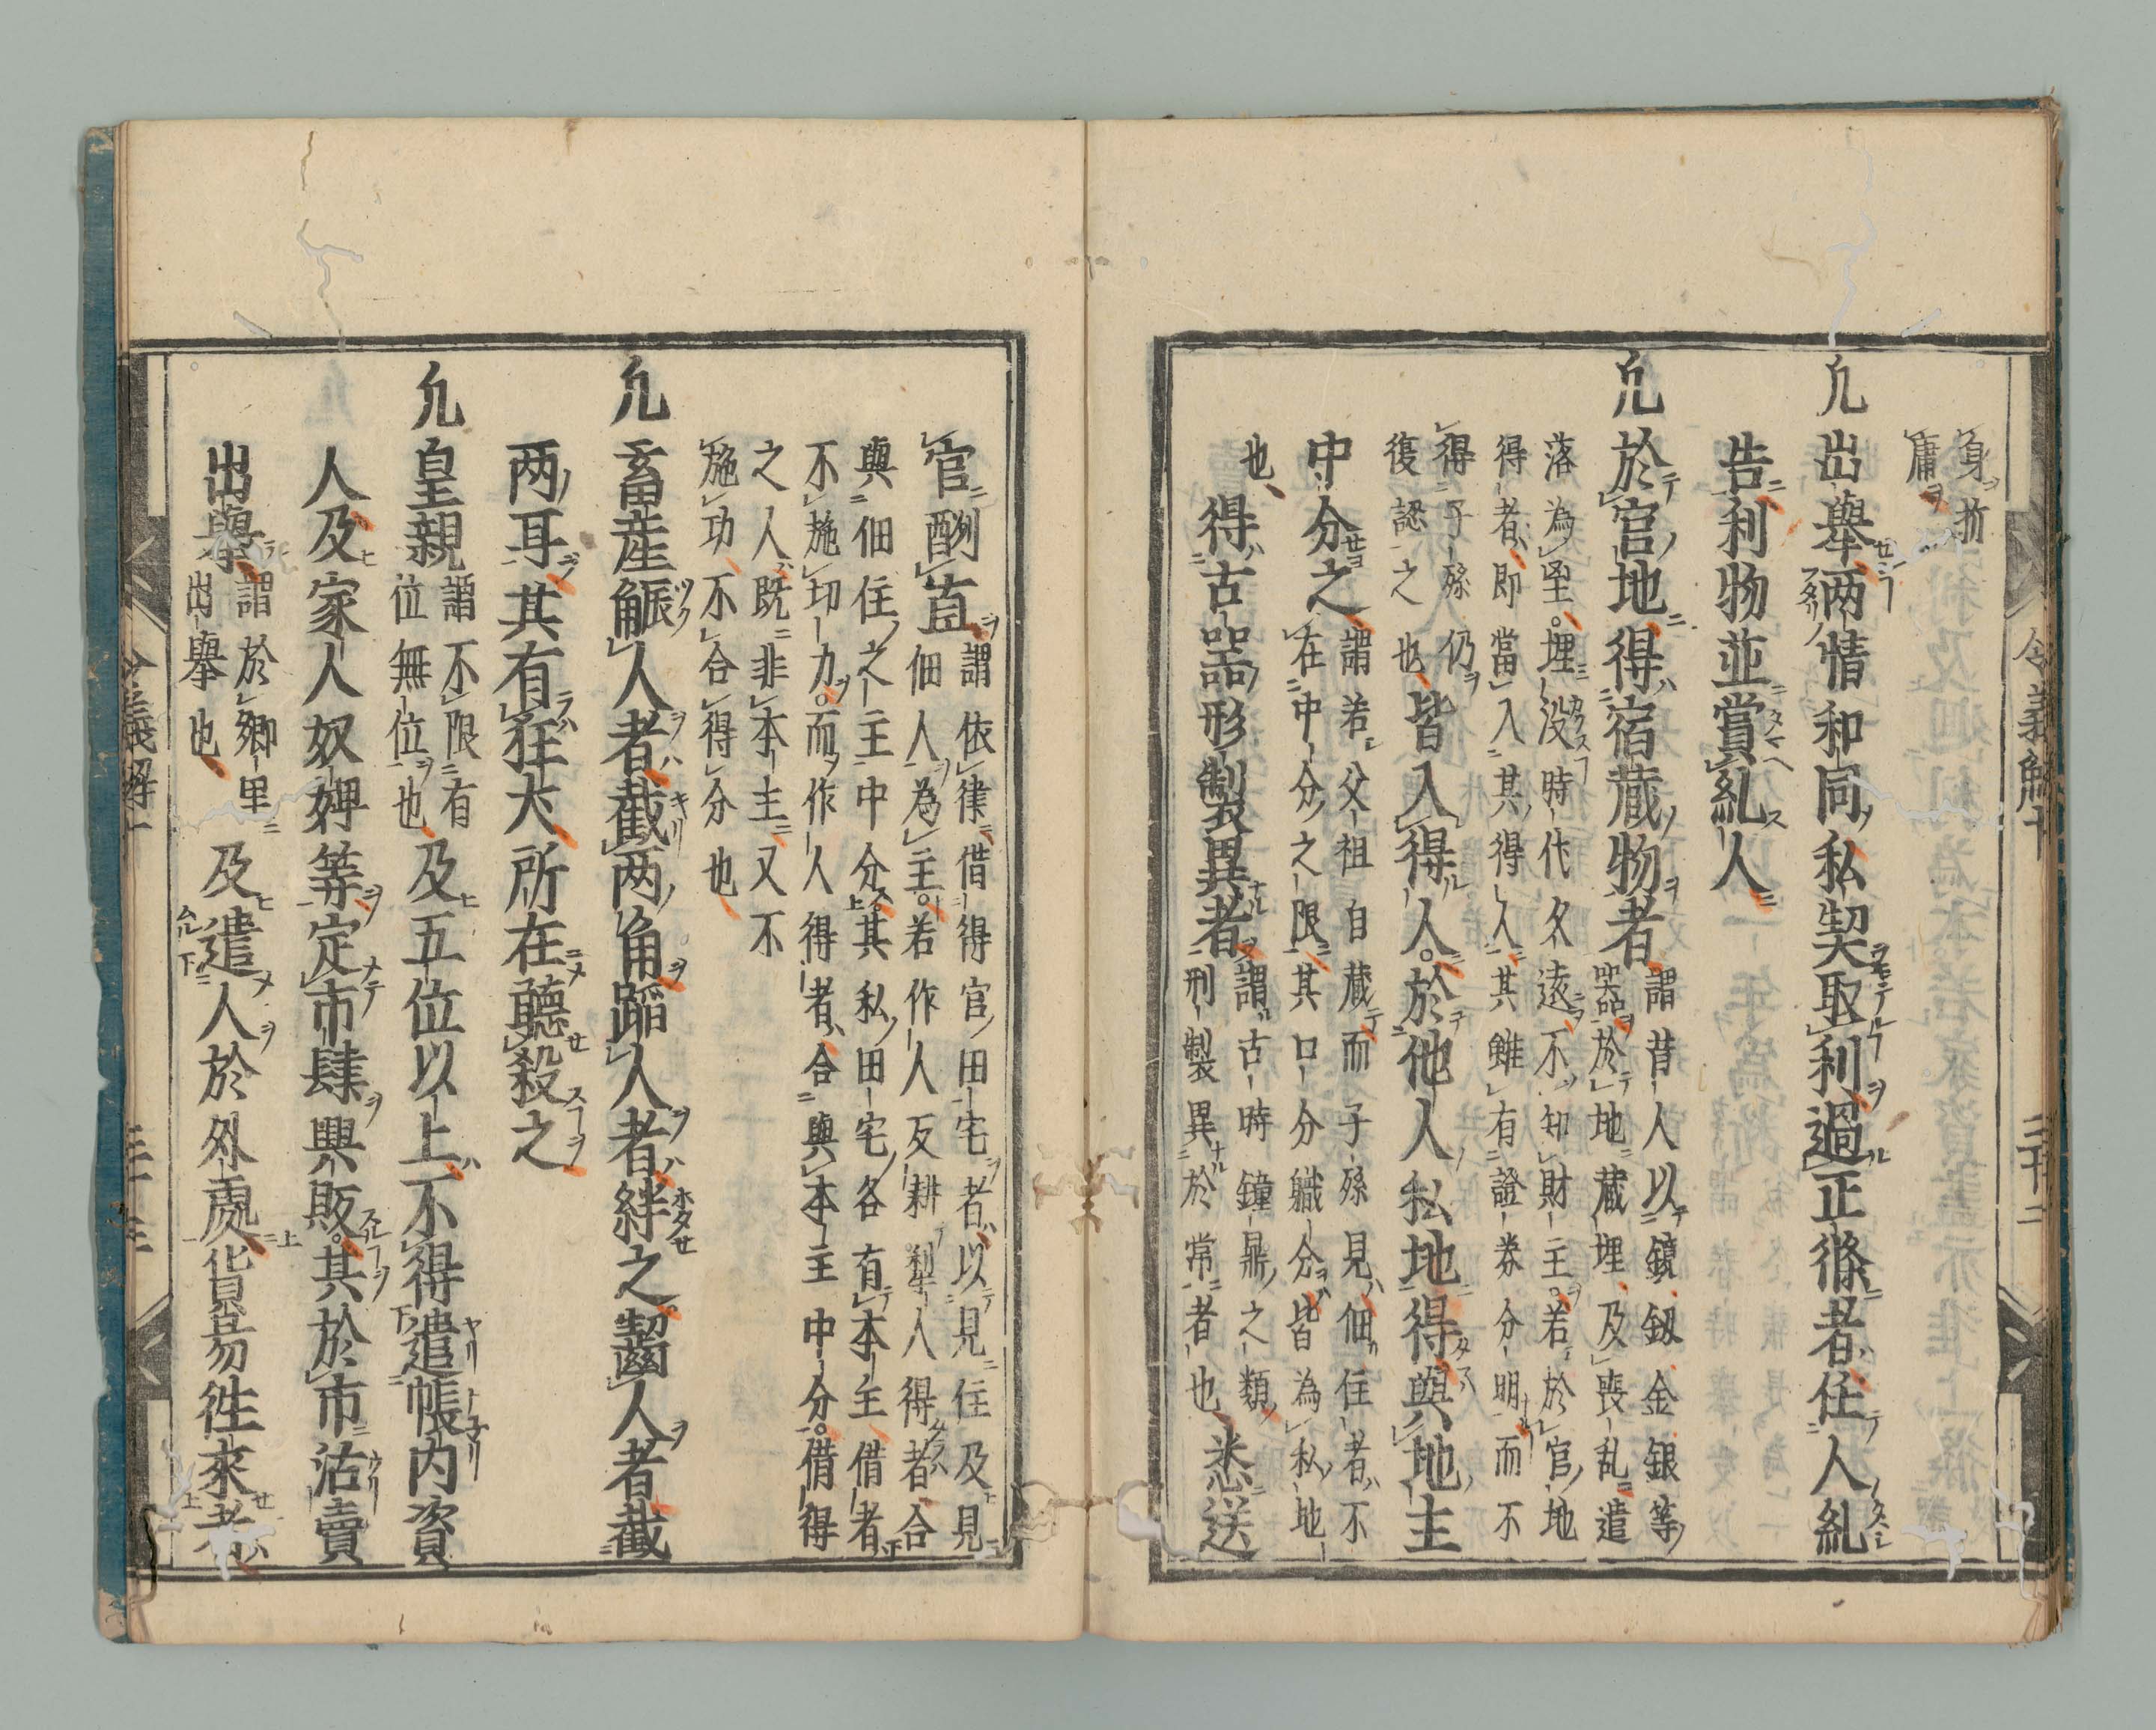 身折
庸
凡出擧兩情和同私契取利過正條者任人糺
告利物並賞糺人
凡於官地得宿蔵物者
謂昔人以鏡釼金銀等
器於地蔵埋及喪乱遣
落為堊埋没時代久遠不知財主若於官地
得者即當入其得人其雖有證券分明而不
得子孫仍
復認之也
皆入得人於他人私地得與地主
中分之
謂若父祖自蔵而子孫見佃住者不
在中分之限其口分職分皆為私地
也
得古器形製異者
謂古時鐘鼎之類
刑製異於常者也
悉送
官酬直
謂依律借得官田宅者以見住及見
佃人為主若作人反耕犁人得者合
與佃住之主中分其私田宅各有本主借者
不施切力而作人得者合與本主中分借得
之人既非本主又不
施功不合得分也
凡畜産觝人者截兩角蹈人者絆之齧人者截
兩耳其有狂犬所在聽殺之
凡皇親
謂不限有
位無位也
及五位以上不得遣帳内資
人及家人奴婢等定市肆興販其於市沽賣
出擧
謂於郷里
出擧也
及遣人於外處貨易徃來者
令義解十
三十二
令義解十